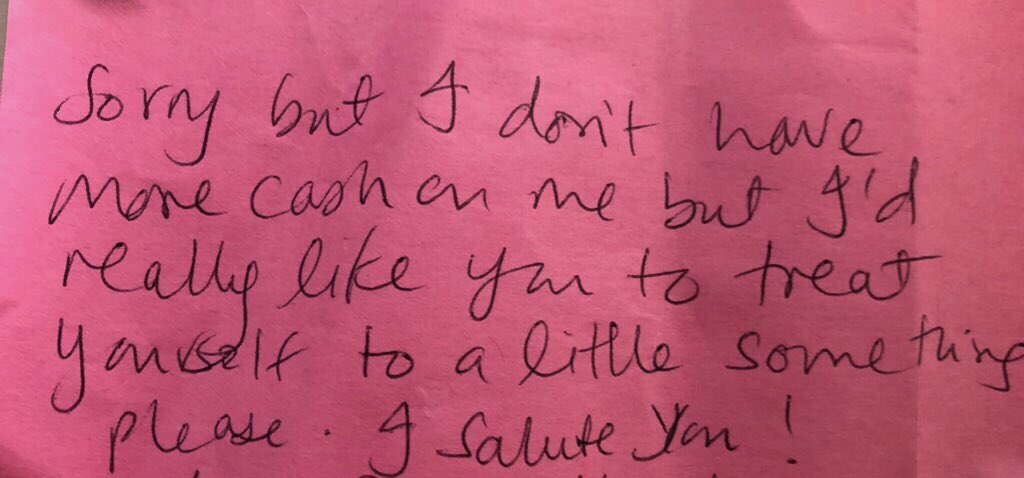 Sorry but I don't have
more cash on me but I'd
really like you to treat
yourself to a little something
please. I salute you!